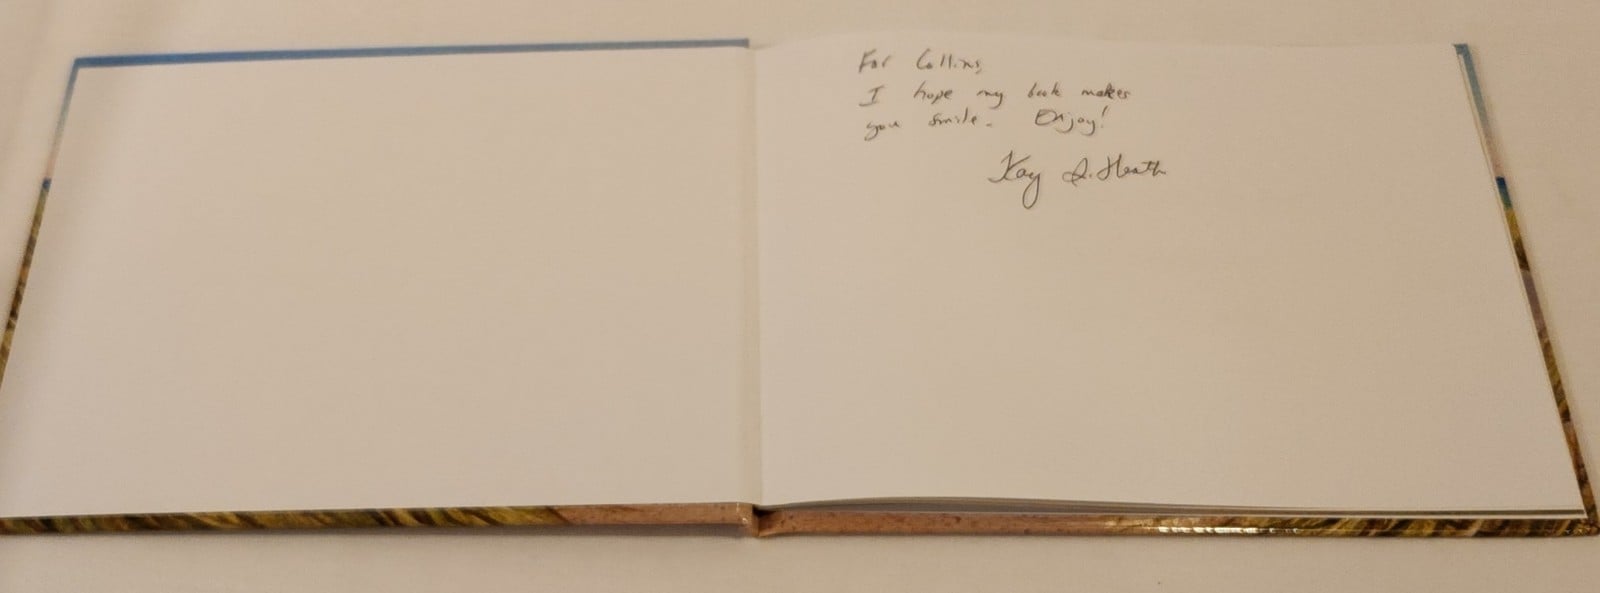 For Collins,
I hope my book makes
you smile. Enjoy!
Kay J. Heath